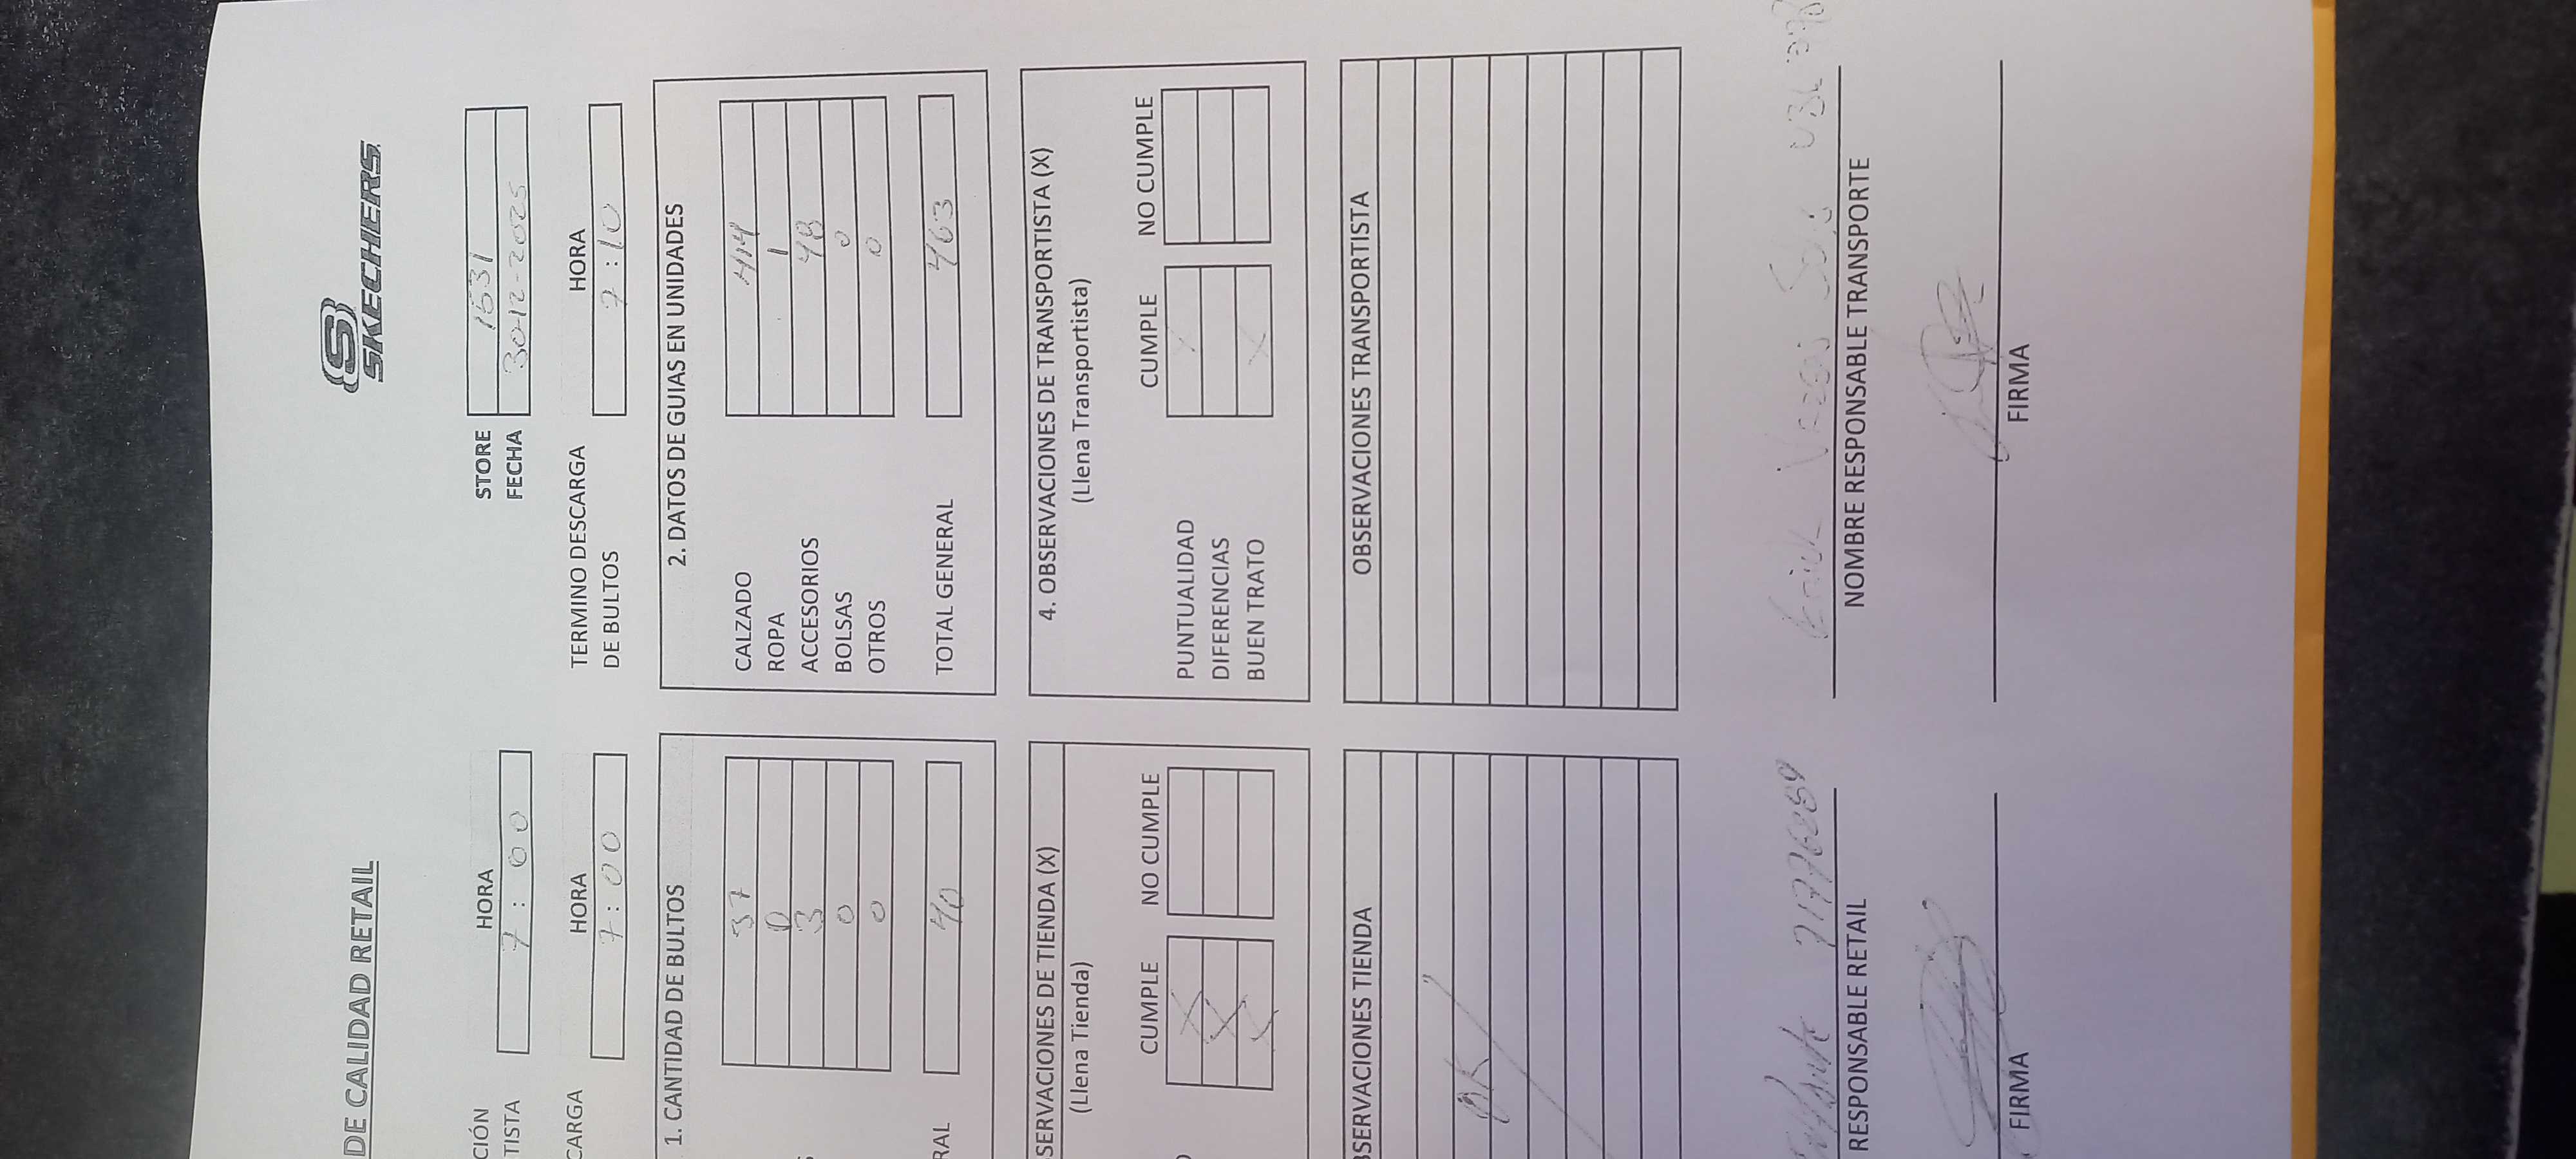 DE CALIDAD RETAIL
SKECHERS
STORE 1631
FECHA 30-12-2025
CIÓN
TISTA
HORA
7:00
CARGA
HORA
7:00
TERMINO DESCARGA
DE BULTOS
HORA
7:10
1. CANTIDAD DE BULTOS
37
0
3
0
0
RAL 40
2. DATOS DE GUIAS EN UNIDADES
CALZADO 414
ROPA 1
ACCESORIOS 48
BOLSAS 0
OTROS 0
TOTAL GENERAL 463
SERVACIONES DE TIENDA (X)
(Llena Tienda)
CUMPLE NO CUMPLE
X
X
X
4. OBSERVACIONES DE TRANSPORTISTA (X)
(Llena Transportista)
CUMPLE NO CUMPLE
PUNTUALIDAD X
DIFERENCIAS
BUEN TRATO X
SERVACIONES TIENDA
OK
OBSERVACIONES TRANSPORTISTA
RESPONSABLE RETAIL
FIRMA
NOMBRE RESPONSABLE TRANSPORTE
FIRMA